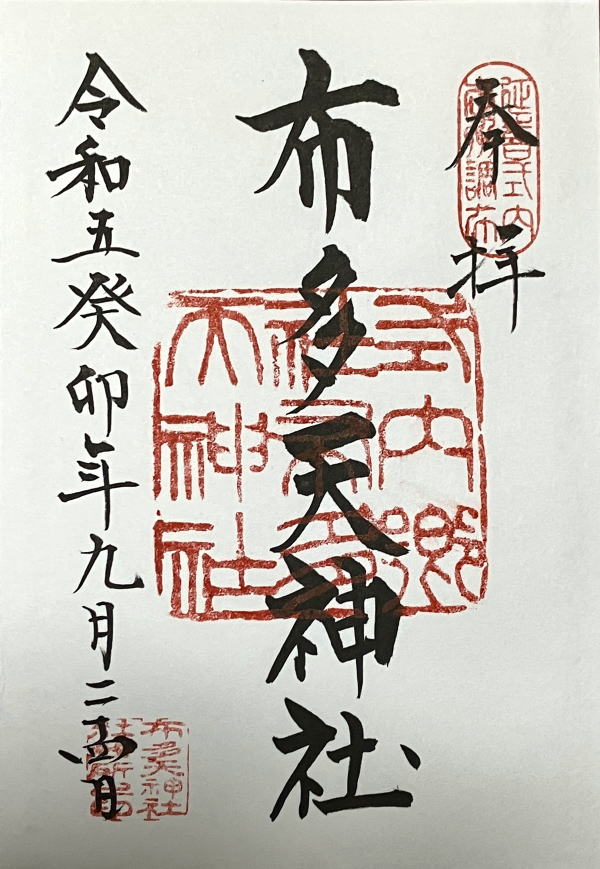 奉拝
延喜式内
調布
布多天神社
式内郷
社布多
天神社
令和五癸卯年九月二十四日
布多天神社
社務所印